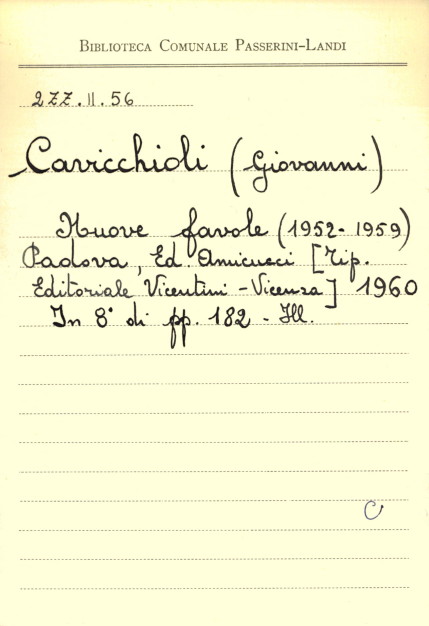 BIBLIOTECA COMUNALE PASSERINI-LANDI
2ZZ.II.56
Cavicchioli (Giovanni)
Nuove favole (1952-1959)
Padova, Ed. Amicucci [Tip.
Editoriale Vicentini - Vicenza] 1960
In 8° di pp. 182 - Ill.
C